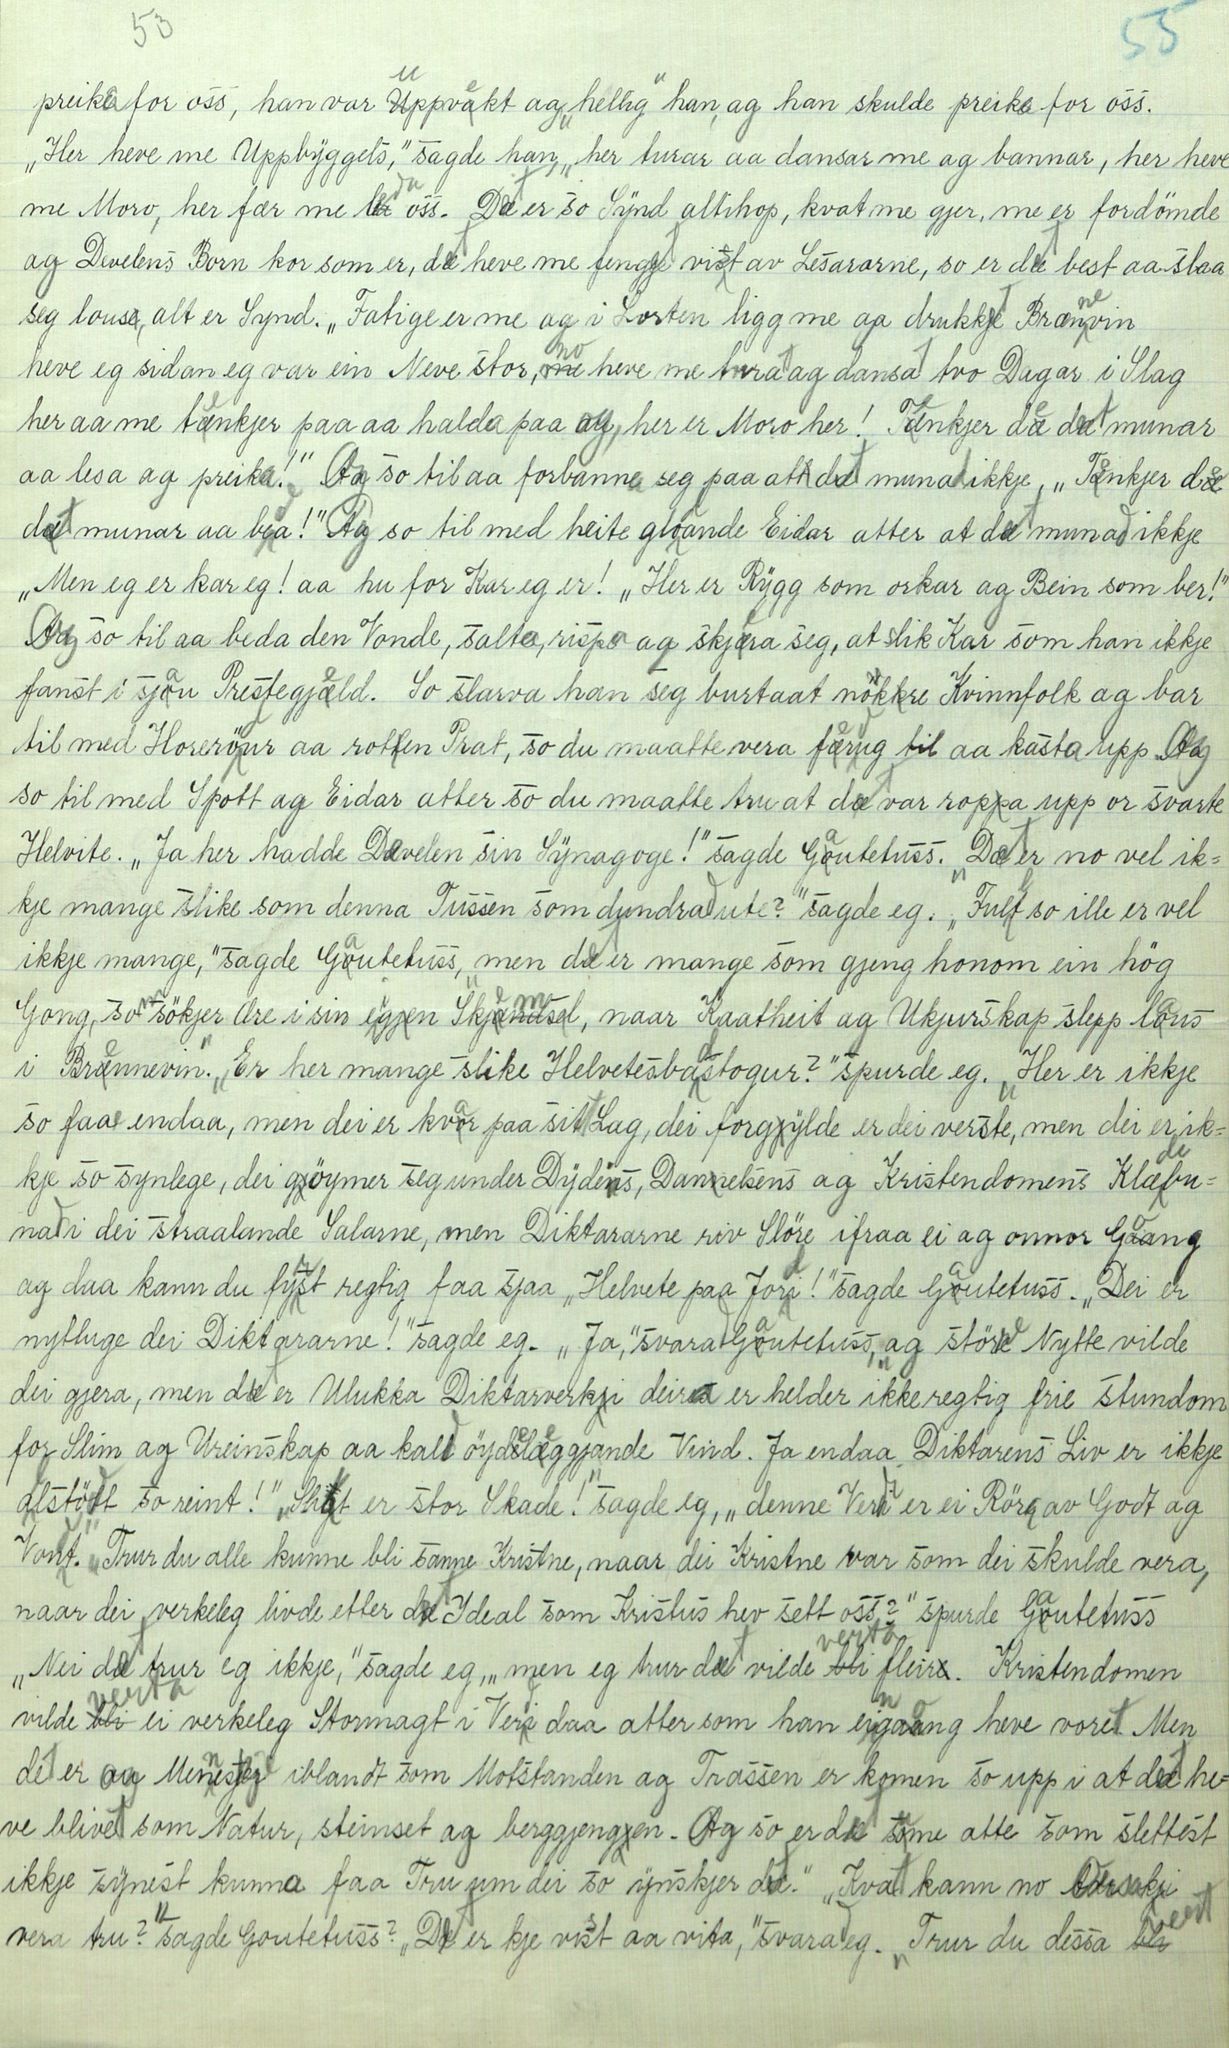 53 55
preika for oss, han var uppvakt ag „hellig" han, ag han skulde preika for oss.
„Her heve me Uppbyggels," sagde han, „her turar aa dansar me ag bannar, her heve
me Moro, her fær me leda oss. Det er so Synd altihop, kvat me gjer, me er fordömde
ag Develens Born kor som er, det heve me fenget vist av Lesararne, so er det best aa slaa
seg lous, alt er Synd. „Fatige er me ag i Lorten ligg me aa drukket Brennevin
heve eg sidan eg var ein Neve stor, no heve me turat ag dansat tvo Dagar i Slag
her aa me tenkjer paa aa halda paa og, her er Moro her! Tenkjer de det munar
aa lesa ag preika!" Og so til aa forbanna seg paa at det munad ikkje, „Tenkjer de
det munar aa bea!" Og so til med heite gloande Eidar atter at det munad ikkje
„Men eg er kar eg! aa hu for Kar eg er! „Her er Rygg som orkar ag Bein som ber!"
Og so til aa beda den Vonde, salta, rispa ag skjera seg, at slik Kar som han ikkje
fanst i sjau Prestegjeld. So slarva han seg burtaat nokre Kvinnfolk ag bar
til med Horeröur aa rotten Prat, so du maatte vera ferug til aa kasta upp. Og
so til med Spott ag Eidar atter so du maatte tru at det var roppa upp or svarte
Helvite. „Ja her hadde Develen sin Synagoge!" sagde Gautetuss. „Det er no vel ik=
kje mange slike som denna Tussen som dundrad ute?" sagde eg. „Fult so ille er vel
ikkje mange," sagde Gautetuss, „men det er mange som gjeng honom ein hög
Gong, som sökjer Ære i sin eigen Skjemsel, naar Kaatheit ag Ukjurskap slepp laus
i Brennevin." „Er her mange slike Helvetesbastogur?" spurde eg. „Her er ikkje
so faae endaa, men dei er kvar paa sit Lag, dei forgylde er dei verste, men dei er ik=
kje so synlege, dei göymer seg under Dydens, Danelsens ag Kristendomens Klædebu=
nad i dei straalande Salarne, men Diktararne riv Slöre ifraa ei ag onnor Gaang
ag daa kann du fyst regtig faa sjaa „Helvete paa Jord!" sagde Gautetuss. „Dei er
nyttuge dei Diktararne!" sagde eg. „Ja," svarad Gautetuss, „ag större Nytte vilde
dei gjera, men det er Ulukka Diktarverki deira er helder ikke regtig frie stundom
for Slim ag Ureinskap aa kald öydeleggjande Vind. Ja endaa Diktarens Liv er ikkje
alstödt so reint!" „Sligt er stor Skade!" sagde eg, „denne Verd er ei Röra av Godt ag
Vondt." „Trur du alle kunne bli sanne Kristne, naar dei Kristne var som dei skulde vera,
naar dei verkeleg livde etter det Ideal som Kristus hev sett oss?" spurde Gautetuss
„Nei det trur eg ikkje," sagde eg, „men eg trur det vilde verta fleire. Kristendomen
vilde verta ei verkeleg Stormagt i Verdi daa atter som han eingaang heve voret. Men
det er og Mennesje iblandt som Motstanden ag Trassen er komen so upp i at det he=
ve blivet som Natur, steinset ag berggjengen. Og so er det sume atte som slettest
ikkje synest kunna faa Tru um dei so ynskjer det." „Kvat kann no
vera tru?" sagde Goutetuss? „Det er kje vist aa vita," svarad eg. „Trur du dessa vert